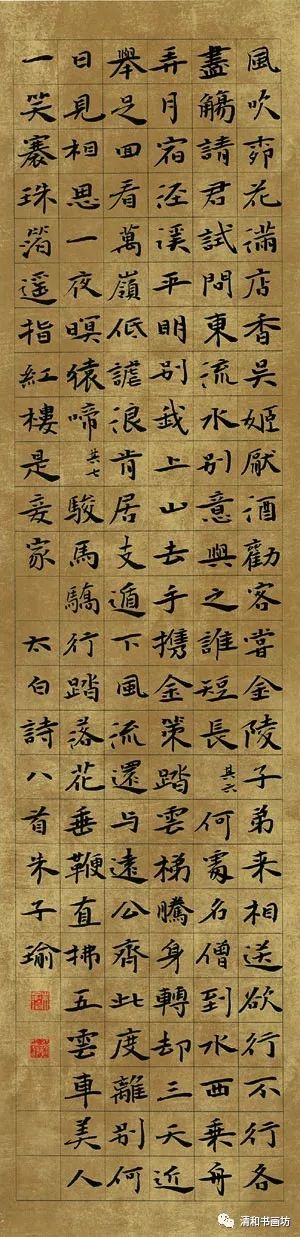 風吹柳花滿店香吳姬厭酒勸客嘗金陵子弟来相送欲行不行各
盡觴請君試問東流水別意與之誰短長其六何處名僧到水西乘舟
弄月宿涇溪平明別我上山去手携金策踏雲梯騰身轉却三天近
舉足回看萬嶺低謔浪肯居支遁下風流還与遠公齊此度離別何
日見相思一夜暝猿啼其七駿馬驕行踏落花垂鞭直拂五雲車美人
一笑褰珠箔遥指紅樓是妾家 太白詩八首朱子瑜
清和书画坊